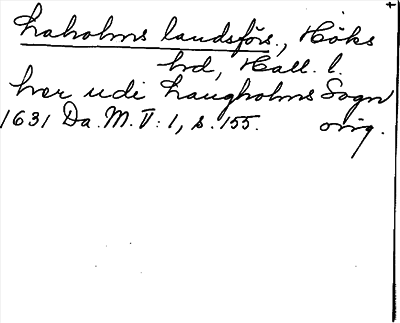 Laholms landsförs., Höks
hd, Hall. l.
her udi Laugholms Sogn
1631 Da. M. V: 1, s. 155. orig.